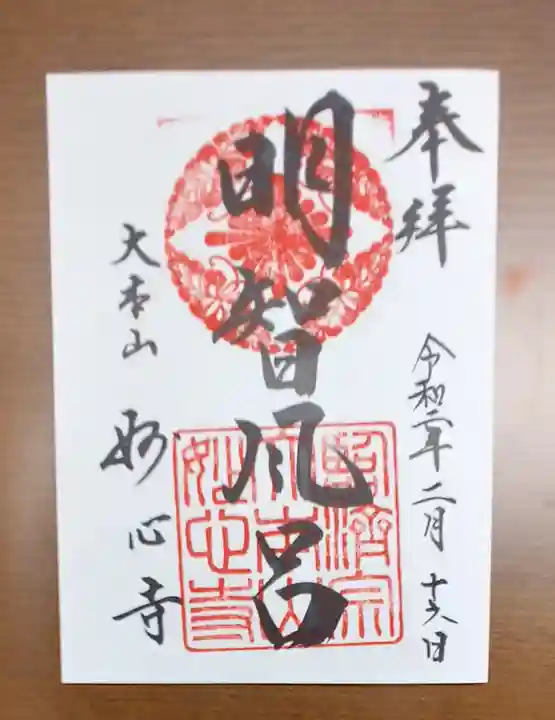 奉拝
令和二年二月十六日
明智風呂
臨済宗
大本山
妙心寺
大本山 妙心寺